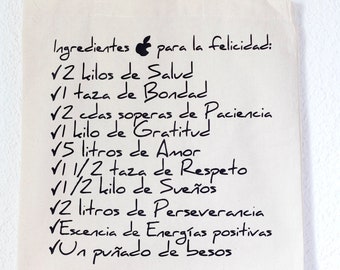 Ingredientes para la felicidad:
✓2 kilos de Salud
✓1 taza de Bondad
✓2 cdas soperas de Paciencia
✓1 kilo de Gratitud
✓5 litros de Amor
✓1 1/2 taza de Respeto
✓1/2 kilo de Sueños
✓2 litros de Perseverancia
✓Escencia de Energías positivas
✓Un puñado de besos